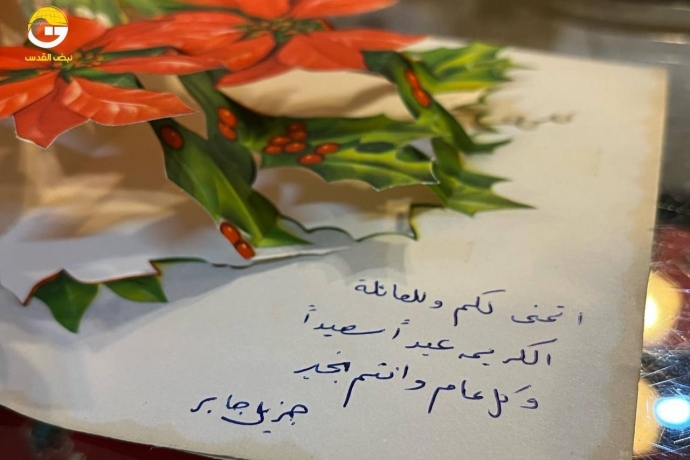 نبض القدس
اتمنى لكم وللعائلة
الكريمة عيداً سعيداً
وكل عام وانتم بخير
جابر